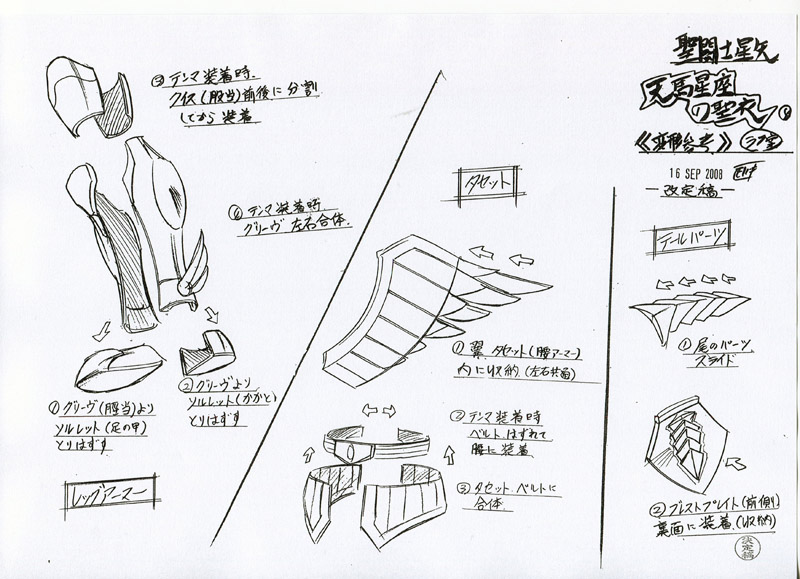 聖闘士星矢
天馬星座
の聖衣
《変形参考》 ラフ
16 SEP 2008
—改定稿—
③ テンマ装着時。
クイス(腿当)前後に分割
してから装着
④ テンマ装着時。
グリーヴ左右合体。
① グリーヴ(脛当)より
ソルレット(足の甲)
とりはずす
② グリーヴより
ソルレット(かかと)
とりはずす
レッグアーマー
タセット
① 翼 タセット(腰アーマー)
内に収納。(左右共通)
② テンマ装着時
ベルトはずれて
腰に装着
③ タセット、ベルトに
合体。
テールパーツ
① 尾のパーツ
スライド
② ブレストプレイト(前側)
裏面に装着(収納)
決定稿